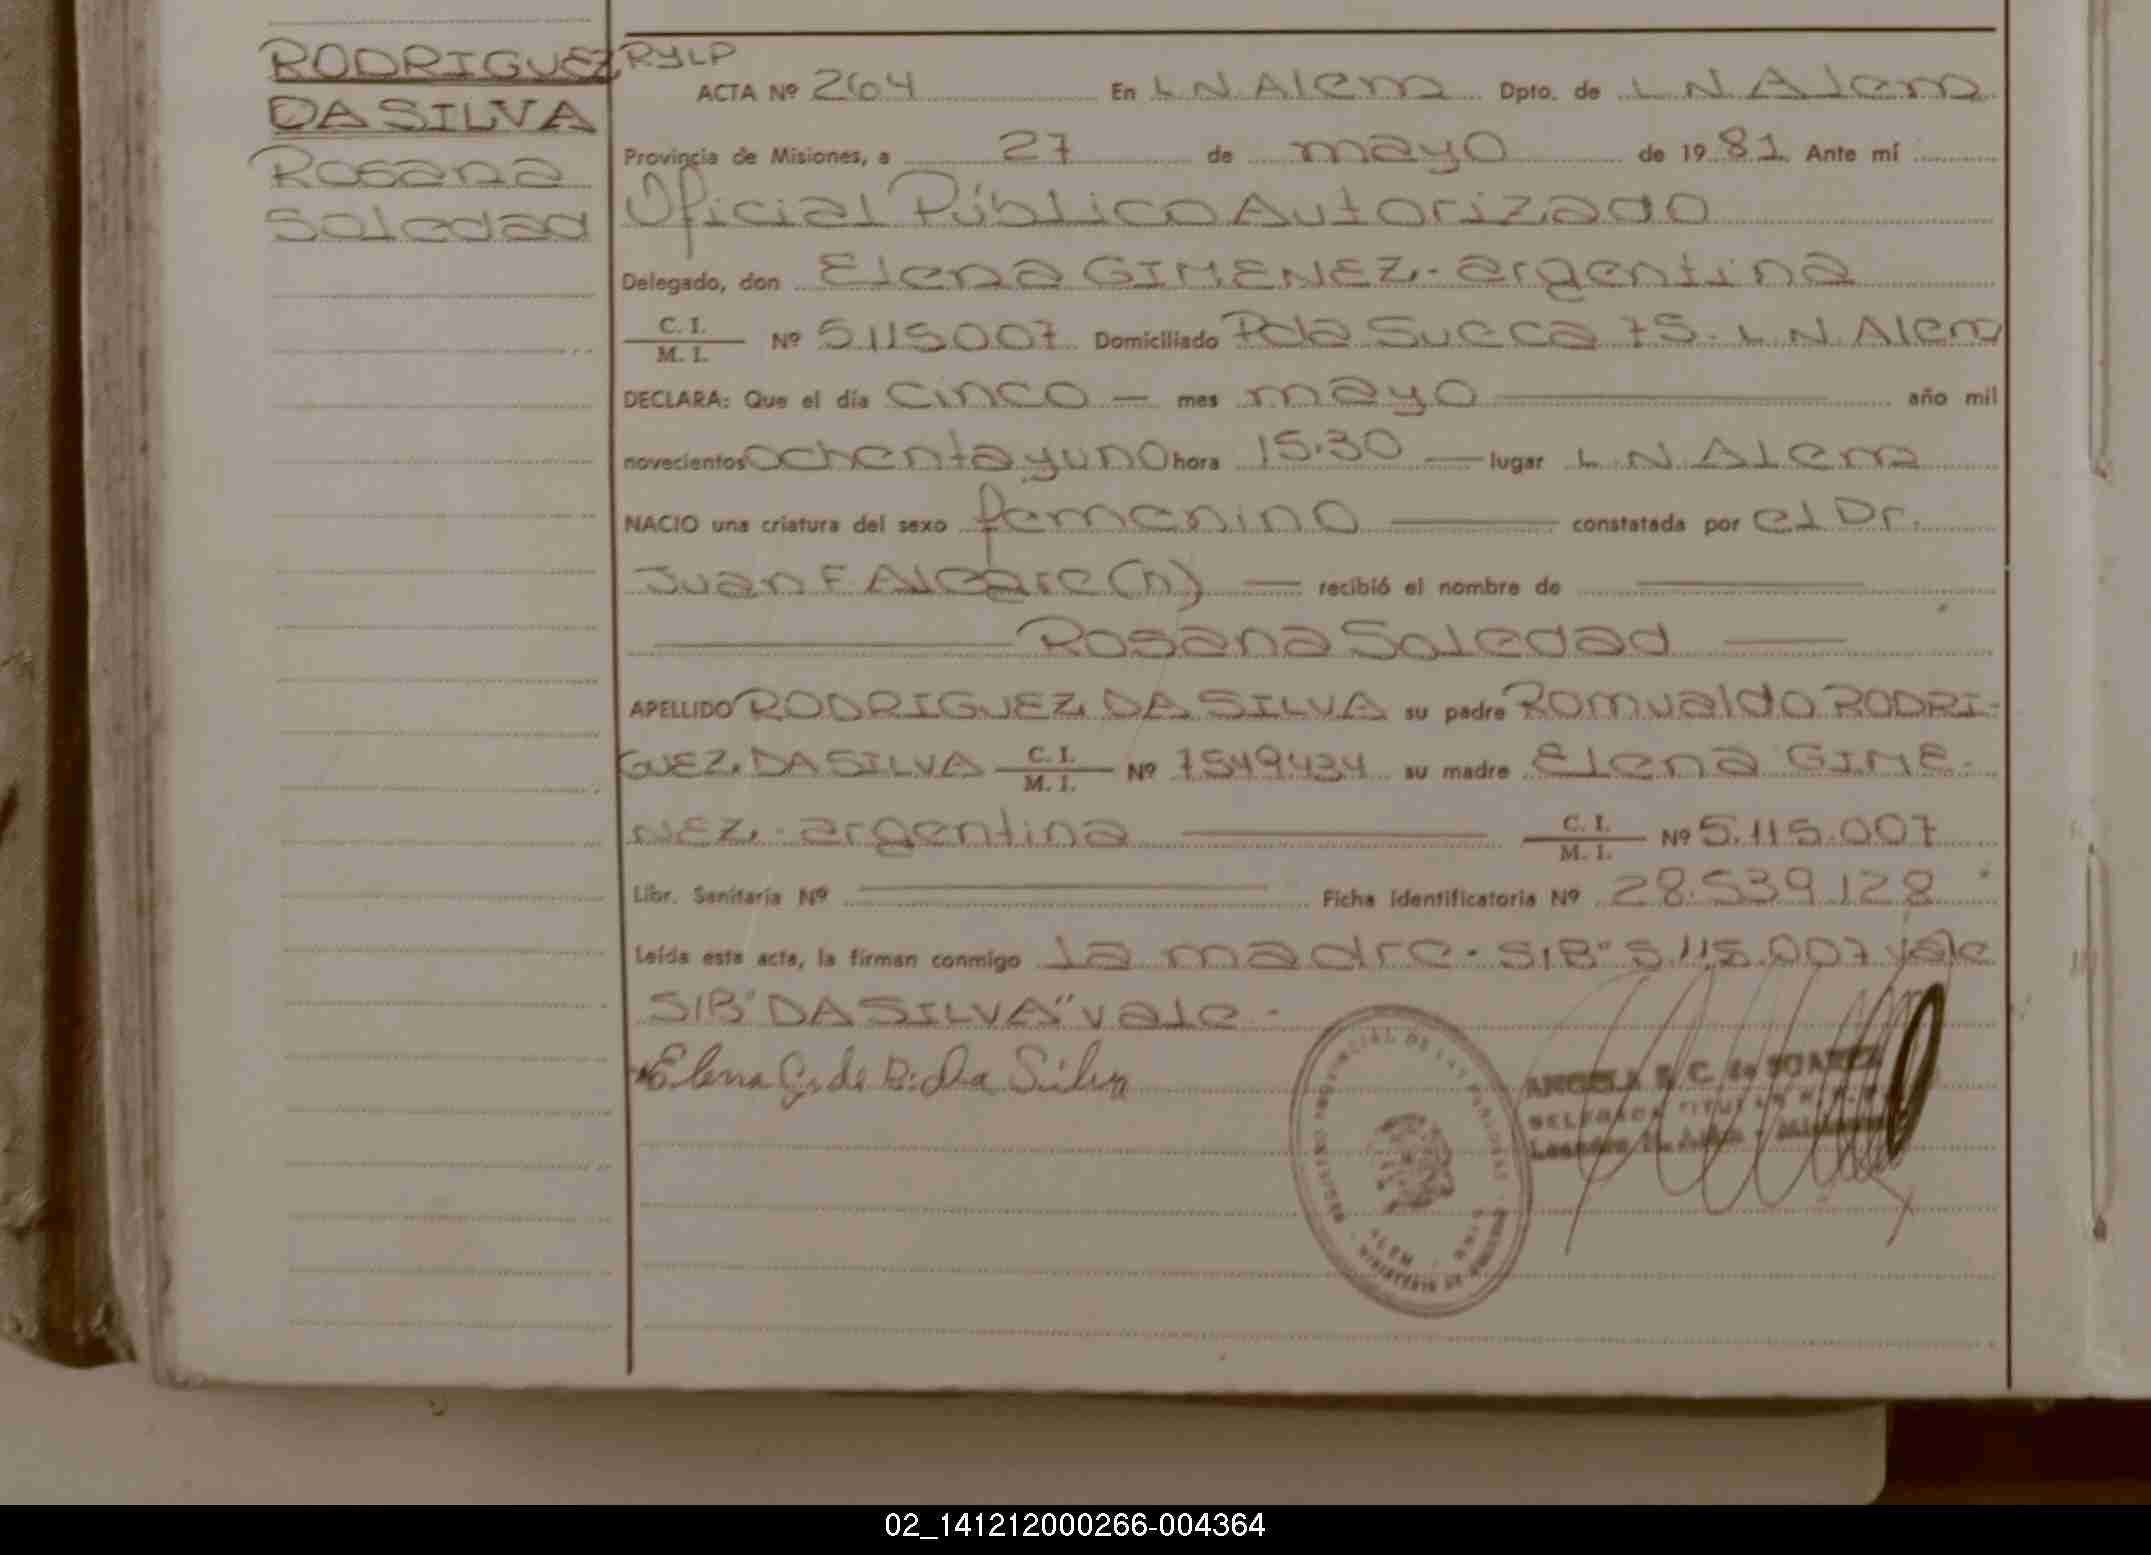 RODRIGUEZ
DA SILVA
Rosana
Soledad
RYLP
ACTA Nº 264 En L N Alem Dpto. de L N Alem
Provincia de Misiones, a 27 de mayo de 1981 Ante mí
Oficial Público Autorizado
Delegado, don Elena GIMENEZ.- argentina
C. I.
M. I. Nº 5115007 Domiciliado Pcla Succa 75. L N Alem
DECLARA: Que el día cinco — mes mayo año mil
novecientos ochenta y uno hora 15.30 — lugar L N Alem
NACIO una criatura del sexo femenino constatada por el Dr.
Juan F (n) — recibió el nombre de
Rosana Soledad
APELLIDO RODRIGUEZ, DA SILVA su padre Romualdo RODRI-
GUEZ, DA SILVA C. I. M. I. Nº 7549434 su madre Elena GIME-
NEZ.- argentina C. I. M. I. Nº 5.115.007
Libr. Sanitaria Nº Ficha identificatoria Nº 28.539.128
Leída esta acta, la firman conmigo la madre. S/B" 5.115.007 vale
S/B" DA SILVA" vale -
Elena G. de R. Da Silva
ANGELA E. C. de SUAREZ
DELEGADA TITULAR
Leandro N. Alem - Misiones
REGISTRO PROVINCIAL DE LAS PERSONAS
ALEM
02_141212000266-004364